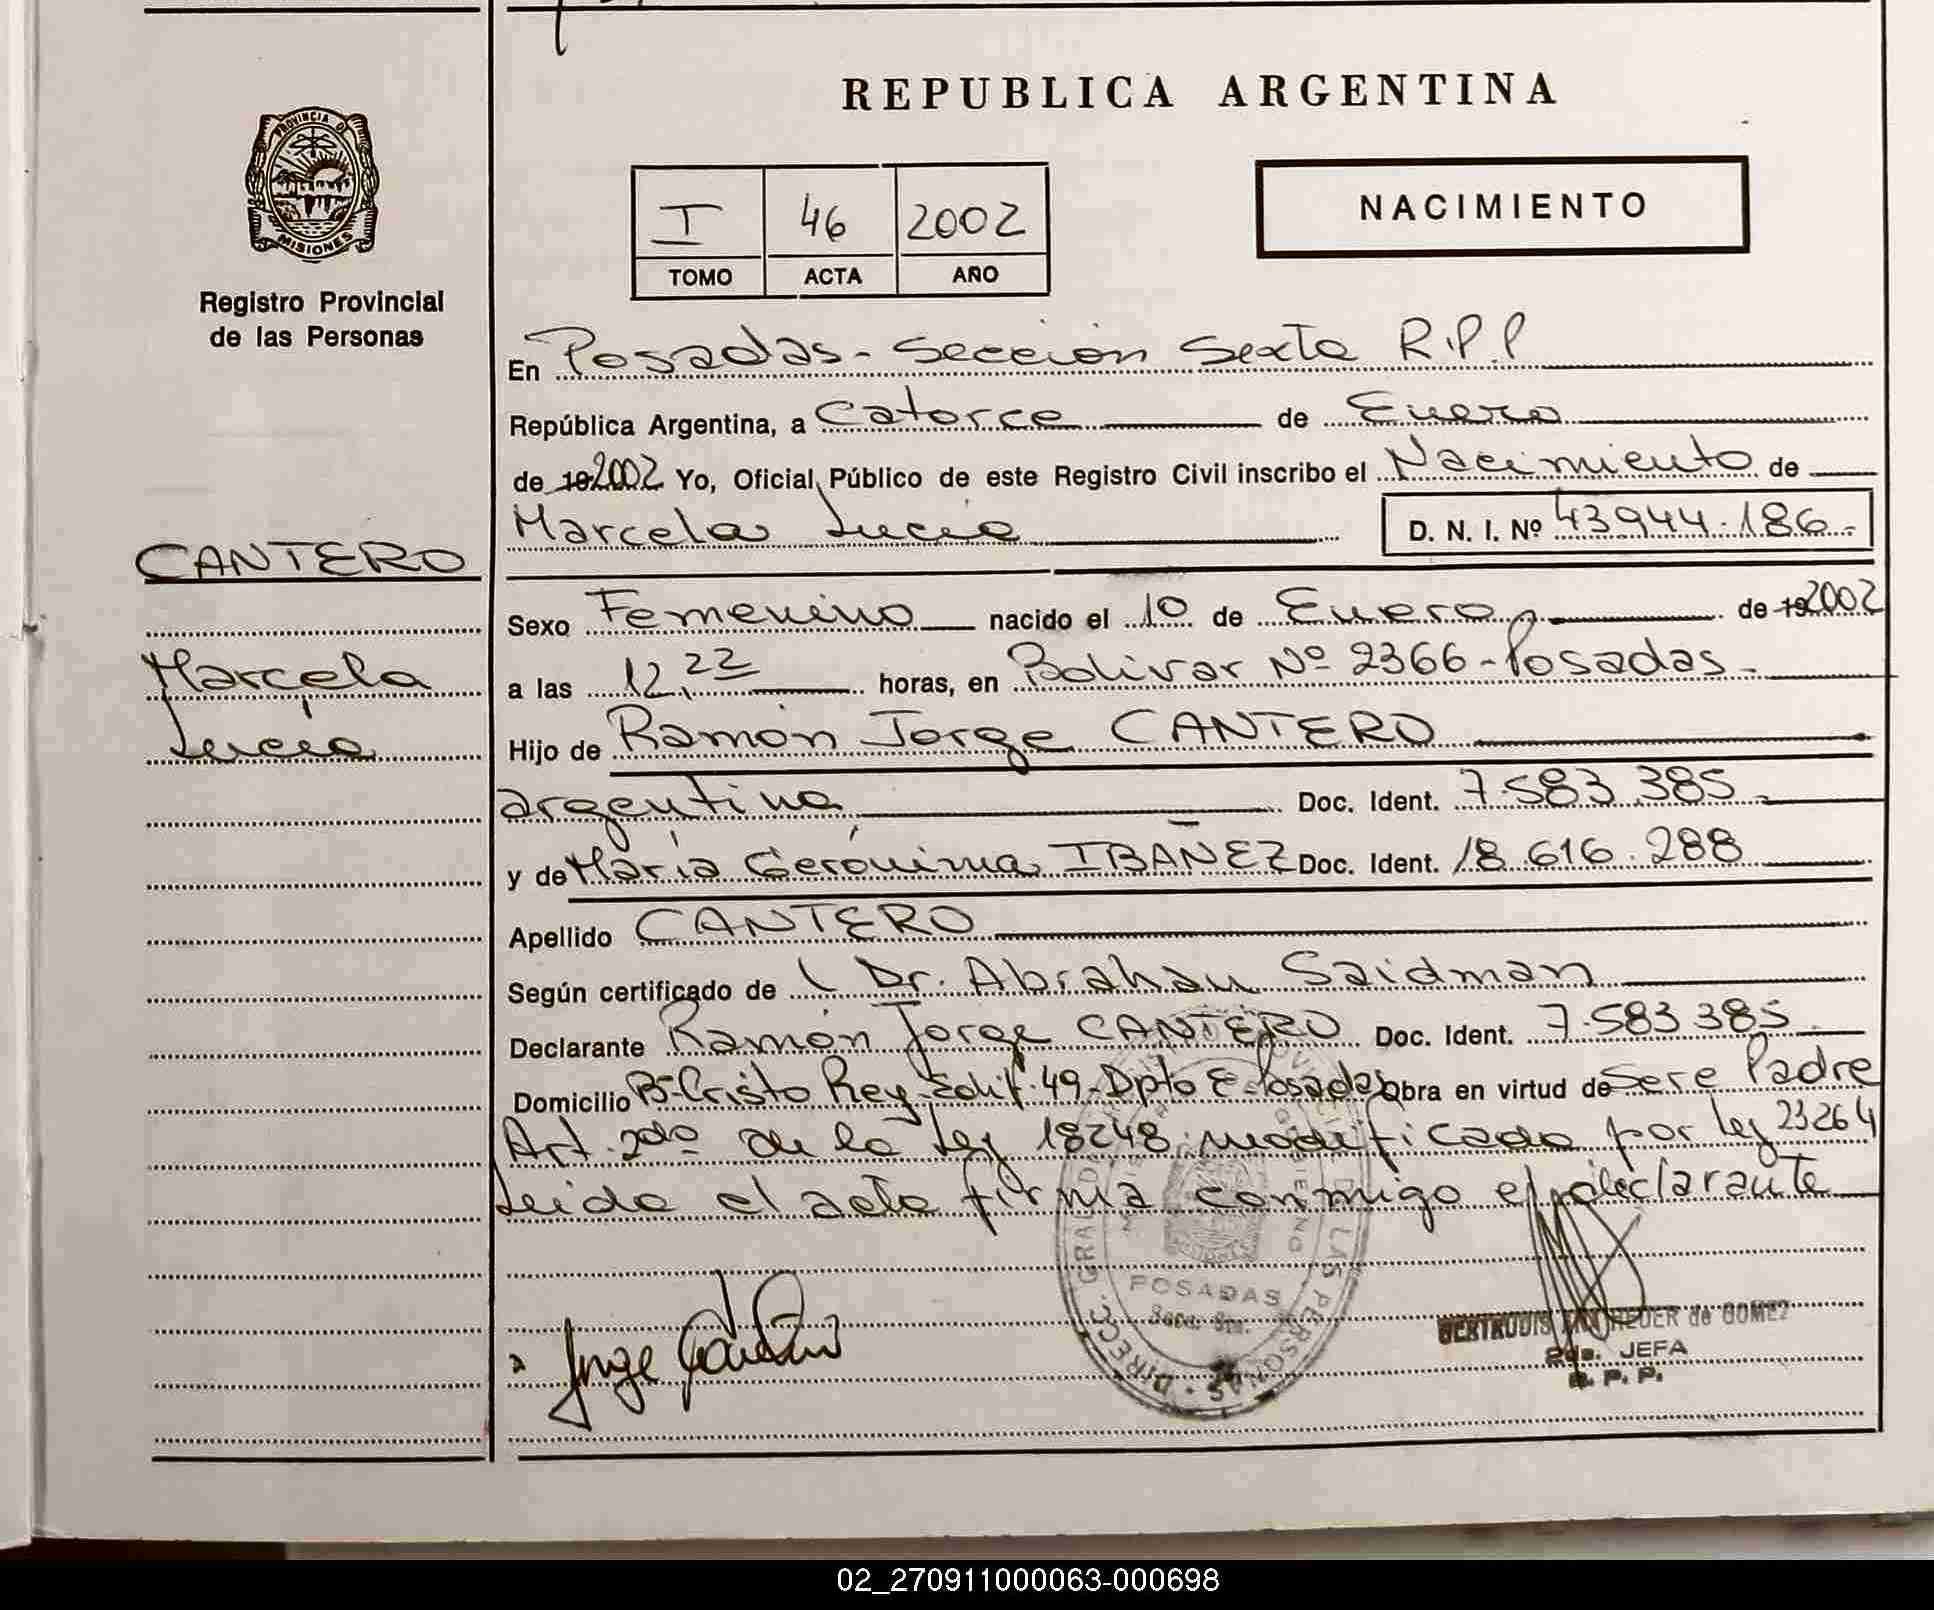 REPUBLICA ARGENTINA
PROVINCIA D
MISIONES
Registro Provincial
de las Personas
I 46 2002
TOMO ACTA AÑO
NACIMIENTO
En Posadas - Sección Sexta R.P.P
República Argentina, a Catorce de Enero
de 19 2002 Yo, Oficial Público de este Registro Civil inscribo el Nacimiento de
Marcela Lucia D. N. I. Nº 43944.186.-
CANTERO
Marcela
Lucia
Sexo Femenino nacido el 10 de Enero de 19 2002
a las 12,22 horas, en Bolivar Nº 2366 - Posadas -
Hijo de Ramón Jorge CANTERO
argentina Doc. Ident. 7.583.385
y de María Gerónima IBAÑEZ Doc. Ident. 18.616.288
Apellido CANTERO
Según certificado de Dr. Abrahan Saidman
Declarante Ramón Jorge CANTERO Doc. Ident. 7.583385
Domicilio Bº Cristo Rey - Edif. 49 - Dpto E - Posadas Obra en virtud de Sere Padre
Art. 2do de la Ley 18248 modificada por Ley 23264
Leida el acta firma conmigo el declarante
POSADAS
LAS PERSONAS
DIRECC. GRAL. D
Jorge Cantero
GERTRUDIS de GOMEZ
2da. JEFA
R. P. P.
02_270911000063-000698